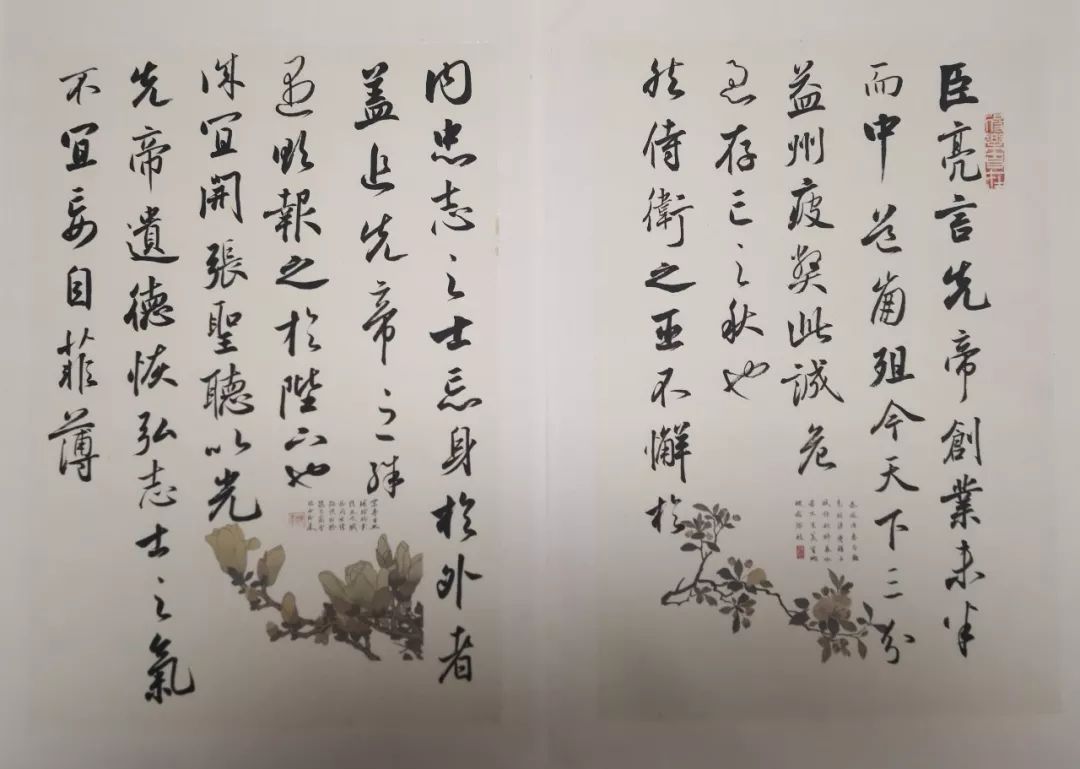 臣亮言先帝創業未半
而中道崩殂今天下三分
益州疲弊此誠危
急存亡之秋也
然侍衛之臣不懈於
内忠志之士忘身於外者
蓋追先帝之殊
遇欲報之於陛下也
誠宜開張聖聽以光
先帝遺德恢弘志士之氣
不宜妄自菲薄